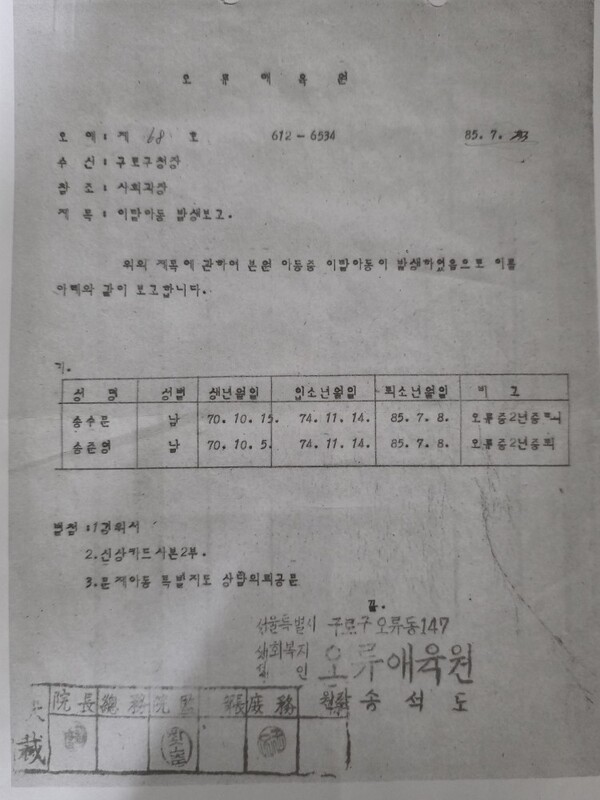 오 류 애 육 원
오 애 : 제 68 호 612-6534 85. 7.
수 신 : 구로구청장
참 조 : 사회과장
제 목 : 이탈아동 발생보고.
위의 제목에 관하여 본원 아동중 이탈아동이 발생하였음으로 이를
아래와 같이 보고합니다.
기.
성 명 성별 생년월일 입소년월일 퇴소년월일 비 고
송수문 남 70. 10. 15. 74. 11. 14. 85. 7. 8. 오류중2년중퇴
송준영 남 70. 10. 5. 74. 11. 14. 85. 7. 8. 오류중2년중퇴
별첨 : 1경위서
2.신상카드사본2부.
3.문제아동 특별지도 상담의뢰공문
끝.
서울특별시 구로구 오류동147
사회복지
법 인 오류애육원
원장 송 석 도
院長 總務 庶務